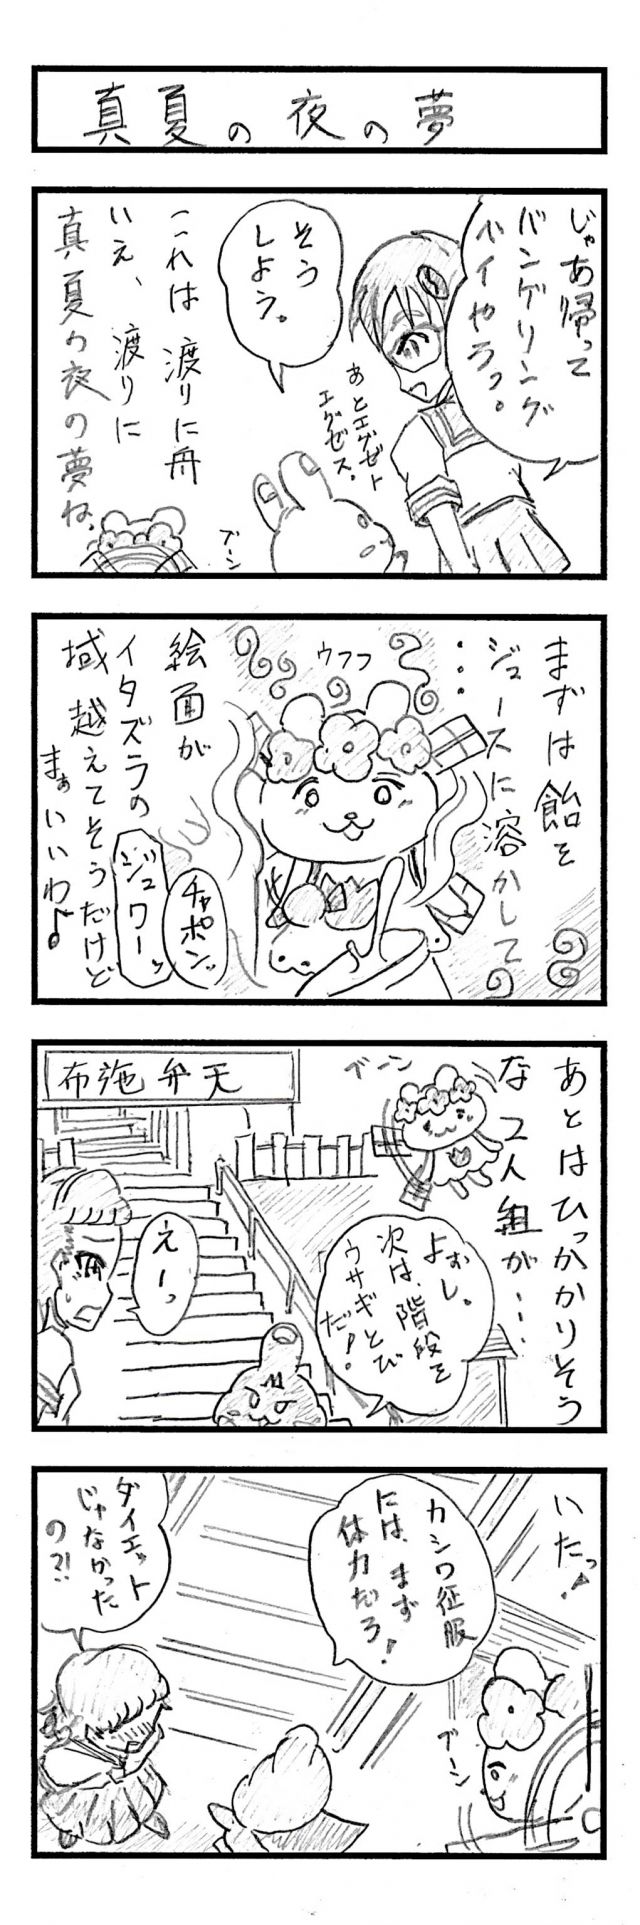 真夏の夜の夢
じゃあ帰って
バンゲリング
ベイやろっ。
あとエグゼト
エグゼス。
そう
しよう。
これは渡りに舟
いえ、渡りに
真夏の夜の夢ね。
ブーン
まずは飴を
ジュースに溶かして
・・・
ウフフ
チャポンッ
ジュワーッ
絵面が
イタズラの
域越えてそうだけど
まぁいいわ♪
あとはひっかかりそう
な2人組が・・・
ブーン
布施弁天
よぉし。
次は、階段を
ウサギとび
だ!
えーっ
いたっ!
カシワ征服
には、まず
体力だろ!
ブーン
ダイエット
じゃなかった
の?!